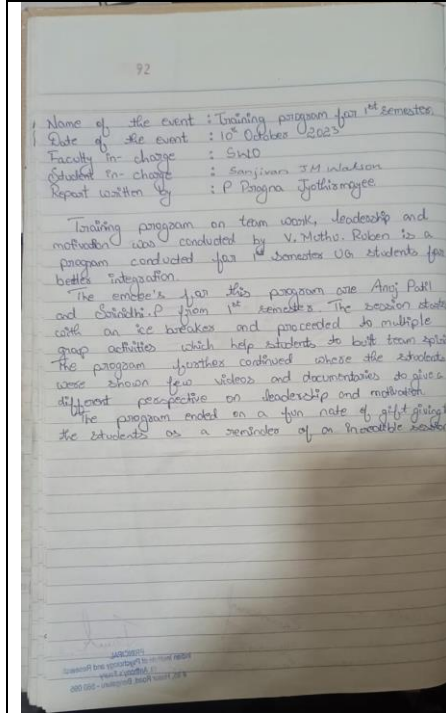 92
Name of the event : Training program for 1st semester.
Date of the event : 10th October 2023
Faculty in-charge : SWO
Student in-charge : Sanjivan J M Walson
Report written by : P Pragna Jyothirmayee
Training program on team work, leadership and
motivation was conducted by V. Muthu. Ruben is a
program conducted for 1st semester UG students for
better integration.
The emcee's for this program are Anoj Patil
and Srinidhi.P from 1st semester. The session starte
with an ice breaker and proceeded to multiple
group activities which help students to built team spiri
The program further continued where the students
were shown few videos and documentaries to give a
different perspective on leadership and motivation.
The program ended on a fun note of gift giving t
the students as a reminder of an incredible session
PRINCIPAL
Indian Institute of Psychology and Research